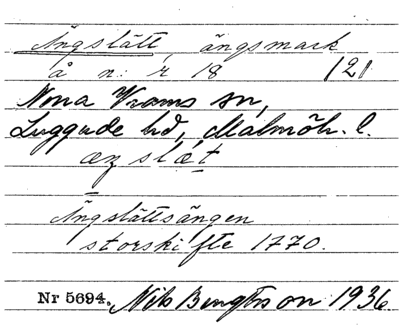 Ängslätt, ängsmark
å n: r 18 121
Norra Vrams sn,
Luggude hd, Malmöh. l.
æŋslæt
=
Ängslättsängen
storskifte 1770.
Nr 5694. Nils Bengtsson 1936